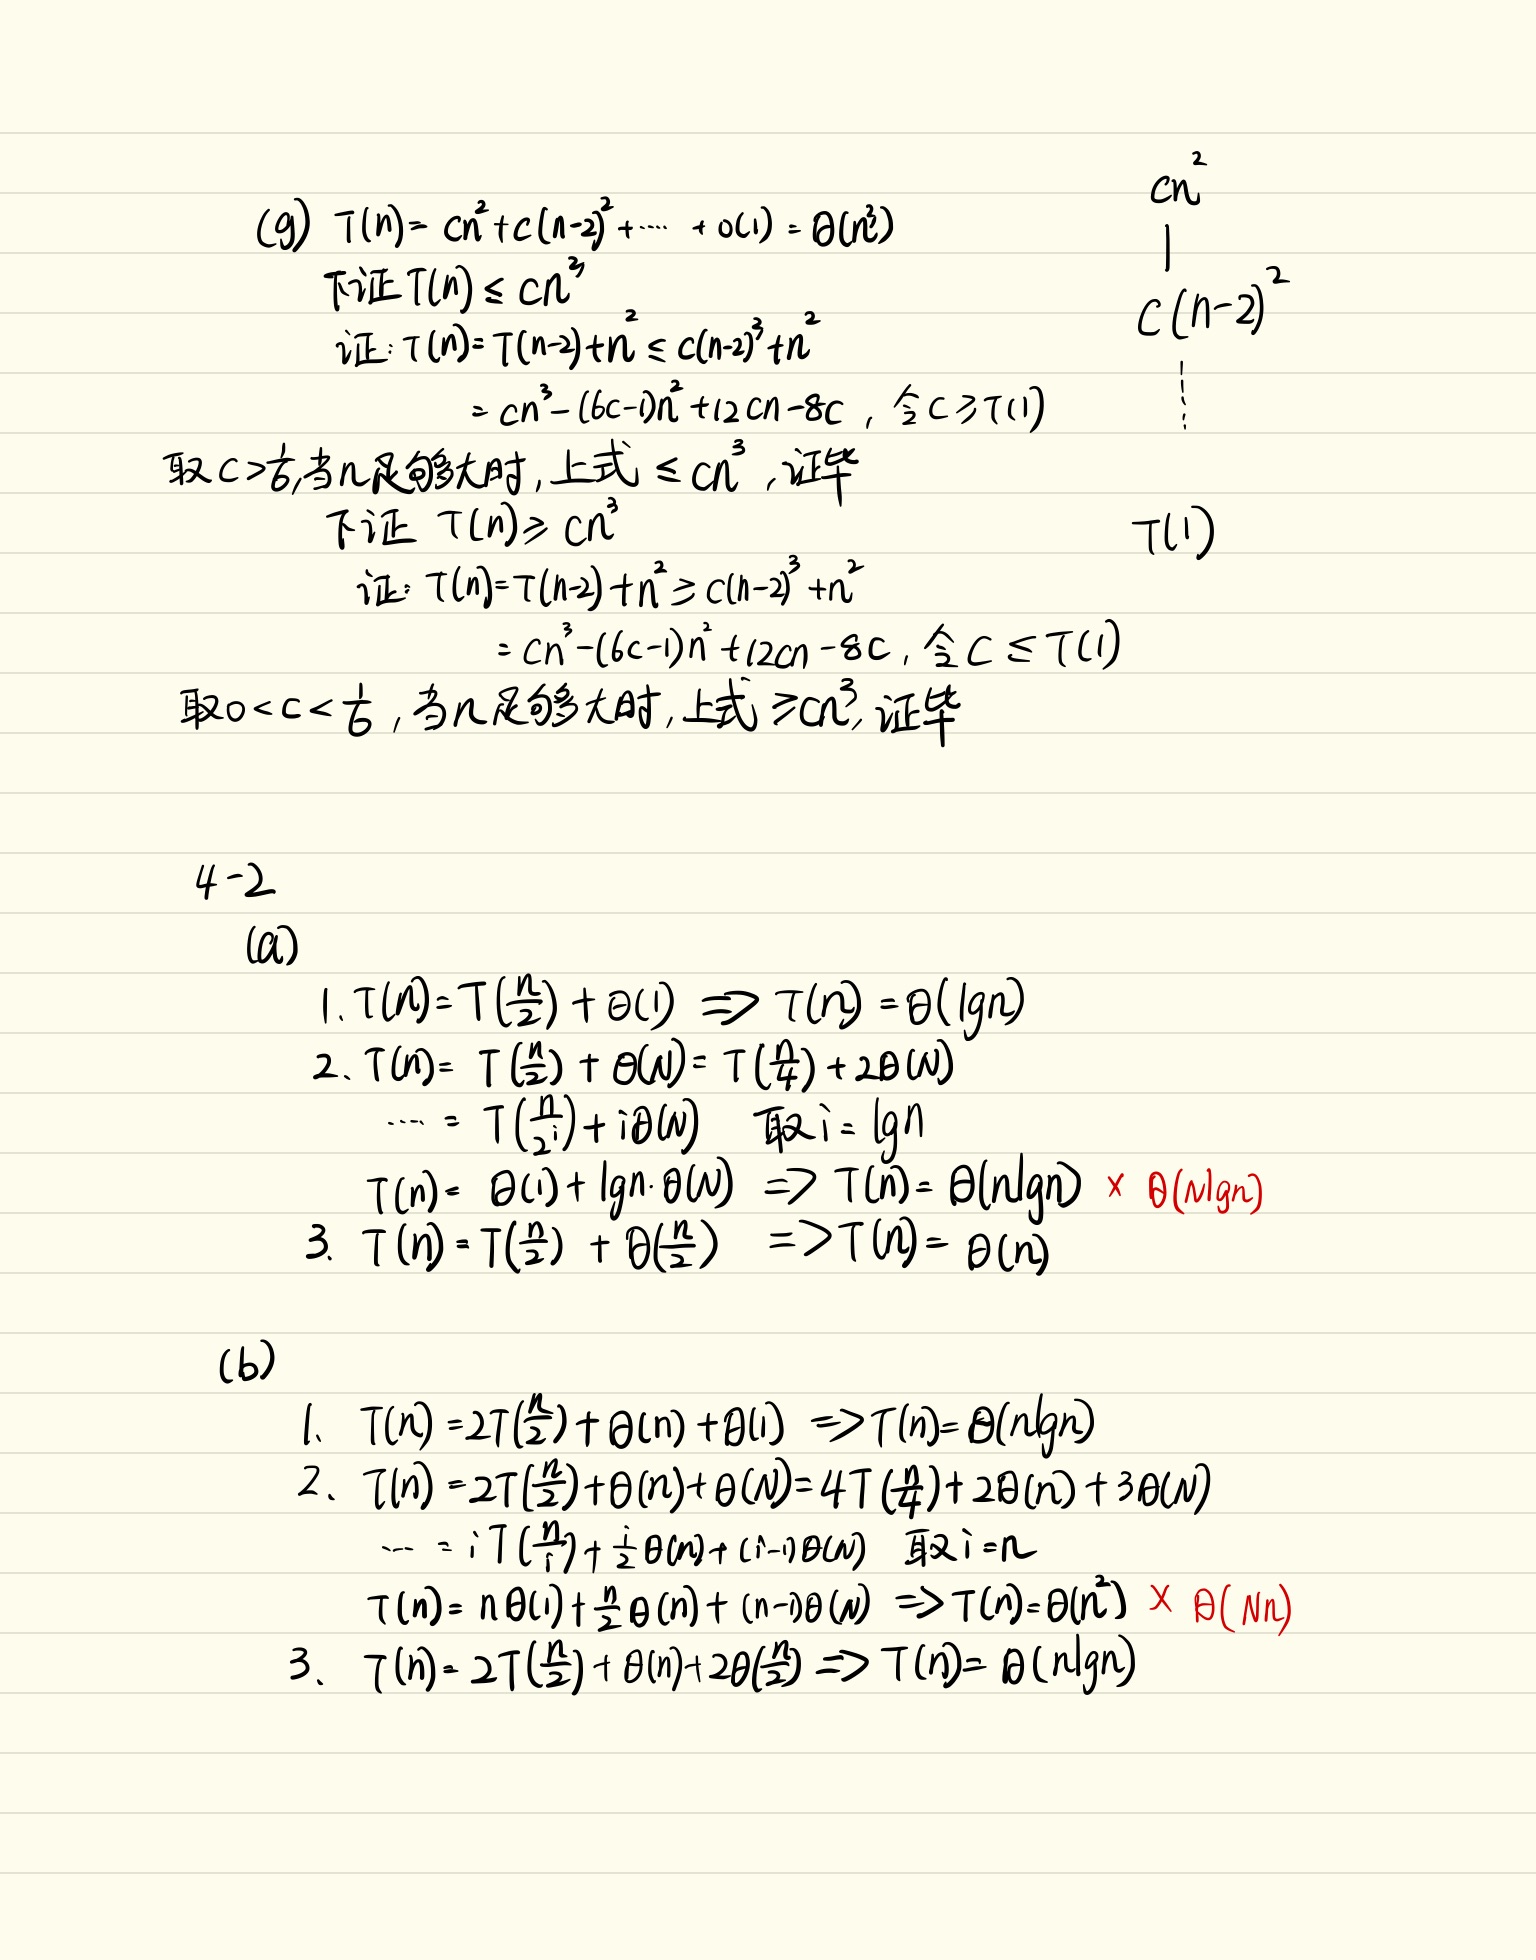 (g) T(n) = cn²+c(n-2)²+…… +o(1) = θ(n³)
下证T(n) ≤ cn³
证: T(n)=T(n-2)+n² ≤ c(n-2)³+n²
= cn³-(6c-1)n²+12cn-8c , 令c≥T(1)
取c>1/6,当n足够大时,上式 ≤ cn³,证毕
下证 T(n) ≥ cn³
证: T(n)=T(n-2)+n² ≥ c(n-2)³+n²
= cn³-(6c-1)n²+12cn-8c, 令c ≤ T(1)
取0<c<1/6, 当n足够大时,上式 ≥cn³,证毕
cn²
|
c(n-2)²
T(1)
4-2
(a)
1. T(n)=T(n/2)+θ(1) => T(n)=θ(lgn)
2、T(n)= T(n/2)+θ(N)= T(n/4)+2θ(N)
…… = T(n/2^i)+iθ(N) 取i=lgn
T(n)= θ(1)+lgn·θ(N) => T(n)=θ(nlgn) × θ(Nlgn)
3. T(n)=T(n/2) + θ(n/2) => T(n)= θ(n)
(b)
1、 T(n)=2T(n/2)+θ(n)+θ(1) => T(n)=θ(nlgn)
2、 T(n)=2T(n/2)+θ(n)+θ(N)=4T(n/4)+2θ(n)+3θ(N)
…… = iT(n/i)+i/2 θ(n)+(i-1)θ(N) 取i=n
T(n)= nθ(1)+n/2 θ(n)+(n-1)θ(N) => T(n)=θ(n²) × θ(Nn)
3、 T(n)=2T(n/2)+θ(n)+2θ(n/2) => T(n)= θ(nlgn)